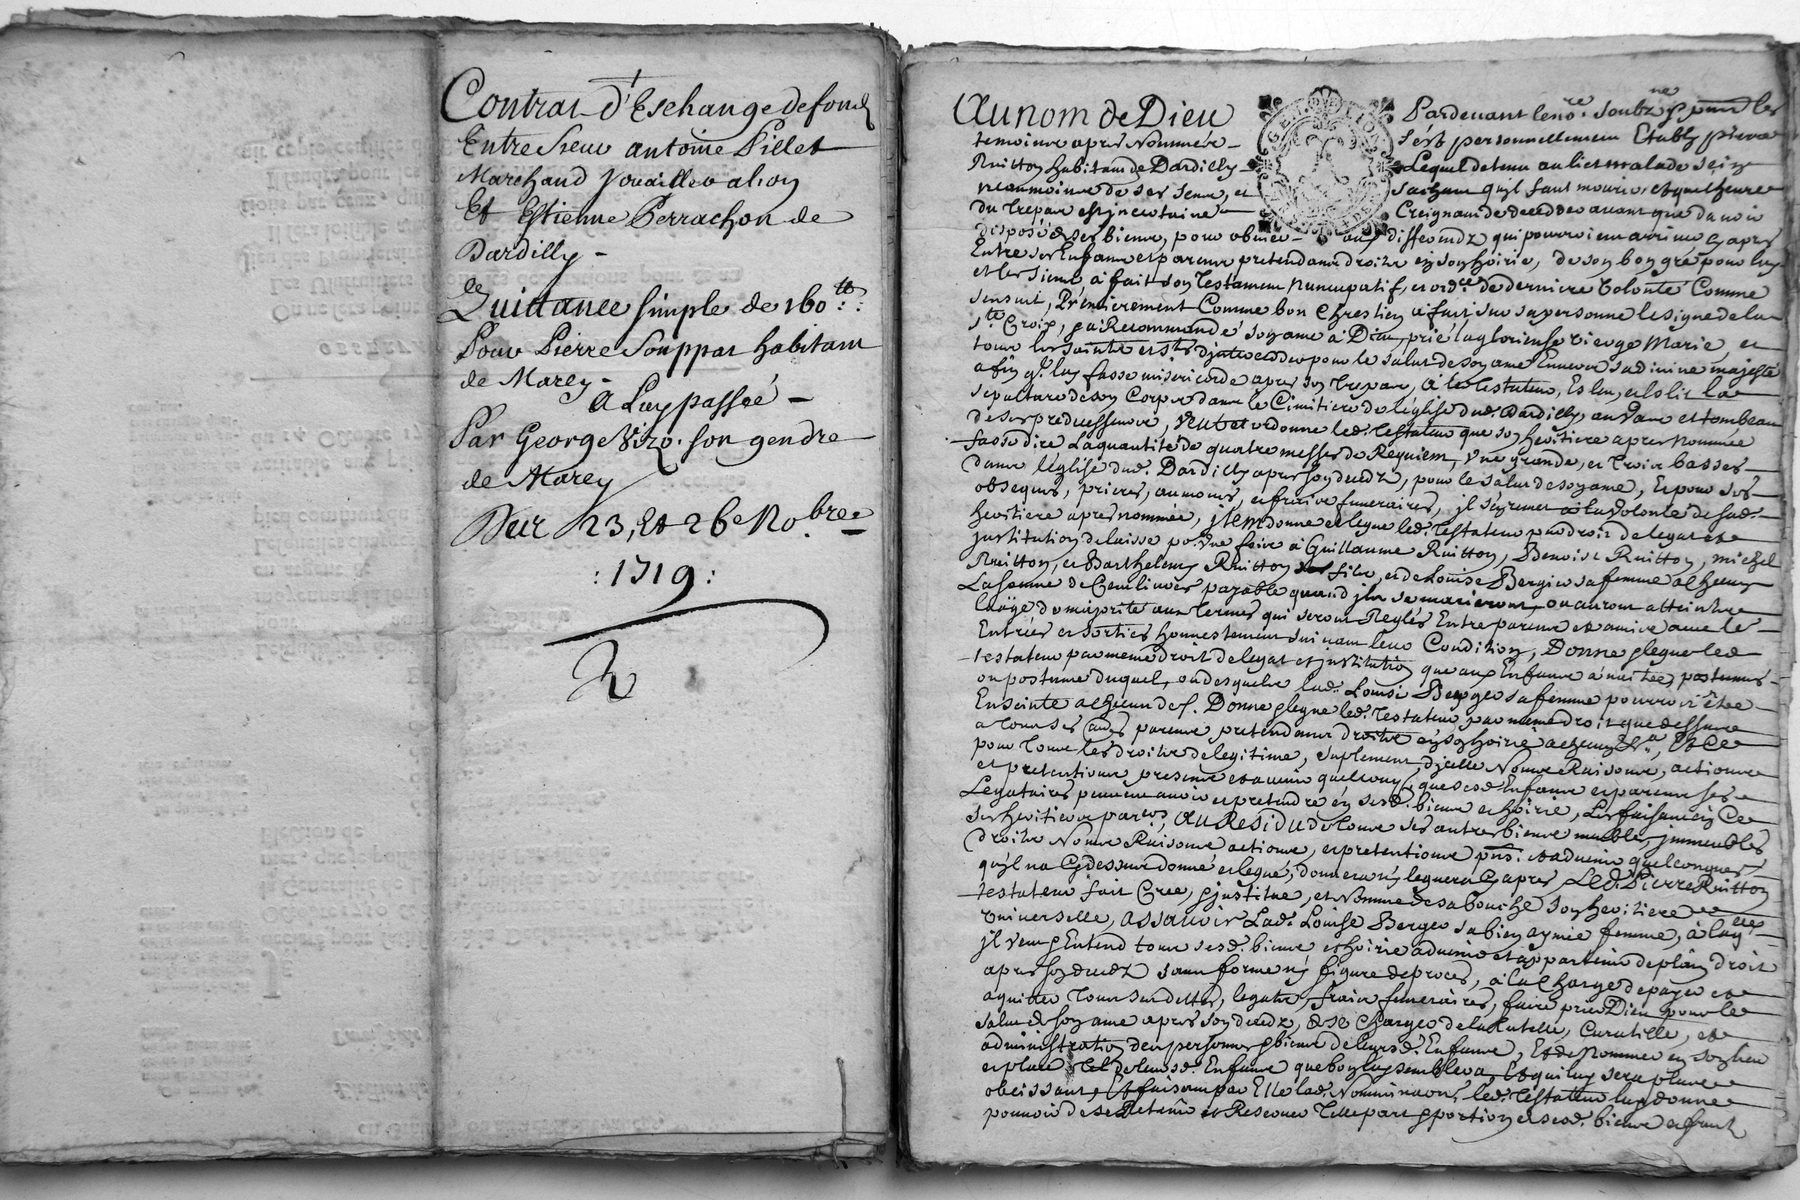 Contrat d'Eschange de fond
Entre Sieur antoine Pillet
Marchand Jouaillier a Lion
Et Estienne Perrachon de
Dardilly -
Quittance simple de 160 ₶.
Pour Pierre Souppat habitant
de Marcy -
A Luy passée -
Par George Vizo. son gendre
de Marcy
Dur 23, et 26e No.bre
: 1719 :
Au nom de Dieu Pardevant le no.re soubz.ne les
temoins apres Nommés - s'est personnellement Etably pierre
Ruitton habitant de Dardilly - Lequel detenu au lict malade sein
neaumoins de ses sens, et sachant qu'il faut mourir, et que l'heure
du Trepas est incertaine - Creignant de deceder avant que d'avoir
disposé de ses biens, pour obvier - aux differendz qui pourroient arriver cy apres
Entre ses Enfans et parens pretendans droits en son hoirie, de son bon gré pour luy
et les siens, a fait son Testament nuncupatif, et ord.ce de derniere volonté Comme
sensuit, Premierement Comme bon Chrestien a fait sur sa personne le signe de la
s.te Croix, Recommandé son ame à Dieu, prié la glorieuse vierge Marie, et
tous les saints et s.tes d'interceder pour le salut de son ame Envers sa divine majesté
afin q.l luy fasse misericorde apres son Trepas, Le Testateur, Eslu, et eslit la
sepulture de son Corps dans le Cimitiere de l'église dud. Dardilly, au Vas et tombeau
de ses predecesseurs, Veut et ordonne led. Testateur que son heritiere apres Nommée
fasse dire La quantité de quatre messes de Requiem, Une grande, et Trois basses -
dans l'église dud. Dardilly apres son decedz, pour le salut de son ame, Et pour ses
obseques, prieres, aumones, et frais funeraires, il s'en remet a la volonté de sad.
heritiere apres nommée, item donne et legue led. Testateur par droit de legat et
institution delaisse po. Une fois à Guillaume Ruitton, Benoist Ruitton, michel
Ruitton, et Barthelemy Ruitton ses fils, et de Louise Bergier sa femme a chacun
La somme de Cent livres payable quand ils se marieront, ou auront atteint
l'aage de majorité aux Termes qui seront Reglés Entre parens et amis avec les
Entrées et sorties honnestement suivant leur Condition, Donne legue led.
testateur par meme droit de legat et institution que aux Enfans à naitre, postumes -
ou postume duquel, ou desquels lad. Louise Bergier sa femme pourroit être
Enceinte a chacun 5 s. Donne legue led. Testateur par meme droit que dessus
a Tous ses autres parens pretendans droits en son hoirie a chacun 5 s., et Ce
pour Tous les droits de legitime, suplement d'icelle Noms Raisons, actions
et pretentions, presens et avenir quelconq. que sesd. Enfans et parens ses
Legataires peuvent avoir et pretendre en sesd. biens et hoirie, Les faisant en Ce
ses heritiers par.ers, Au Residu de Tous ses autres biens meubles, immeubles
droits Noms Raisons actions, et pretentions pns. et advenir quelconques
qu'il na Cydessus donné et legué, donnera ny leguera Cy apres, Led. Pierre Ruitton
testateur fait Cree, institue, et Nomme de sa bouche son heritiere
Universelle, Assavoir Lad. Louise Bergier sa bien aymée femme, à laq.le
il veut Entend tous sesd. biens et hoirie advenir et appartenir de plain droit
apres son decedz sans forme ny figure de procés, à la Charge de payer et
aquitter Tous ses dettes, legats, frais funeraires, faire prier Dieu pour le
salut de son ame apres son decedz, et se Charger de la Tutelle, Curatelle, et
administration des personnes biens de leursd. Enfans, Et de Nommer en son lieu
et place Tel de leursd. Enfans que bon luy semblera, Et qui luy sera plus
obeissant, Et faisant par Elle lad. Nomination, led. Testateur luy donne
pouvoir de se Retenir et Reserver Telle part portion de sesd. biens et fruits